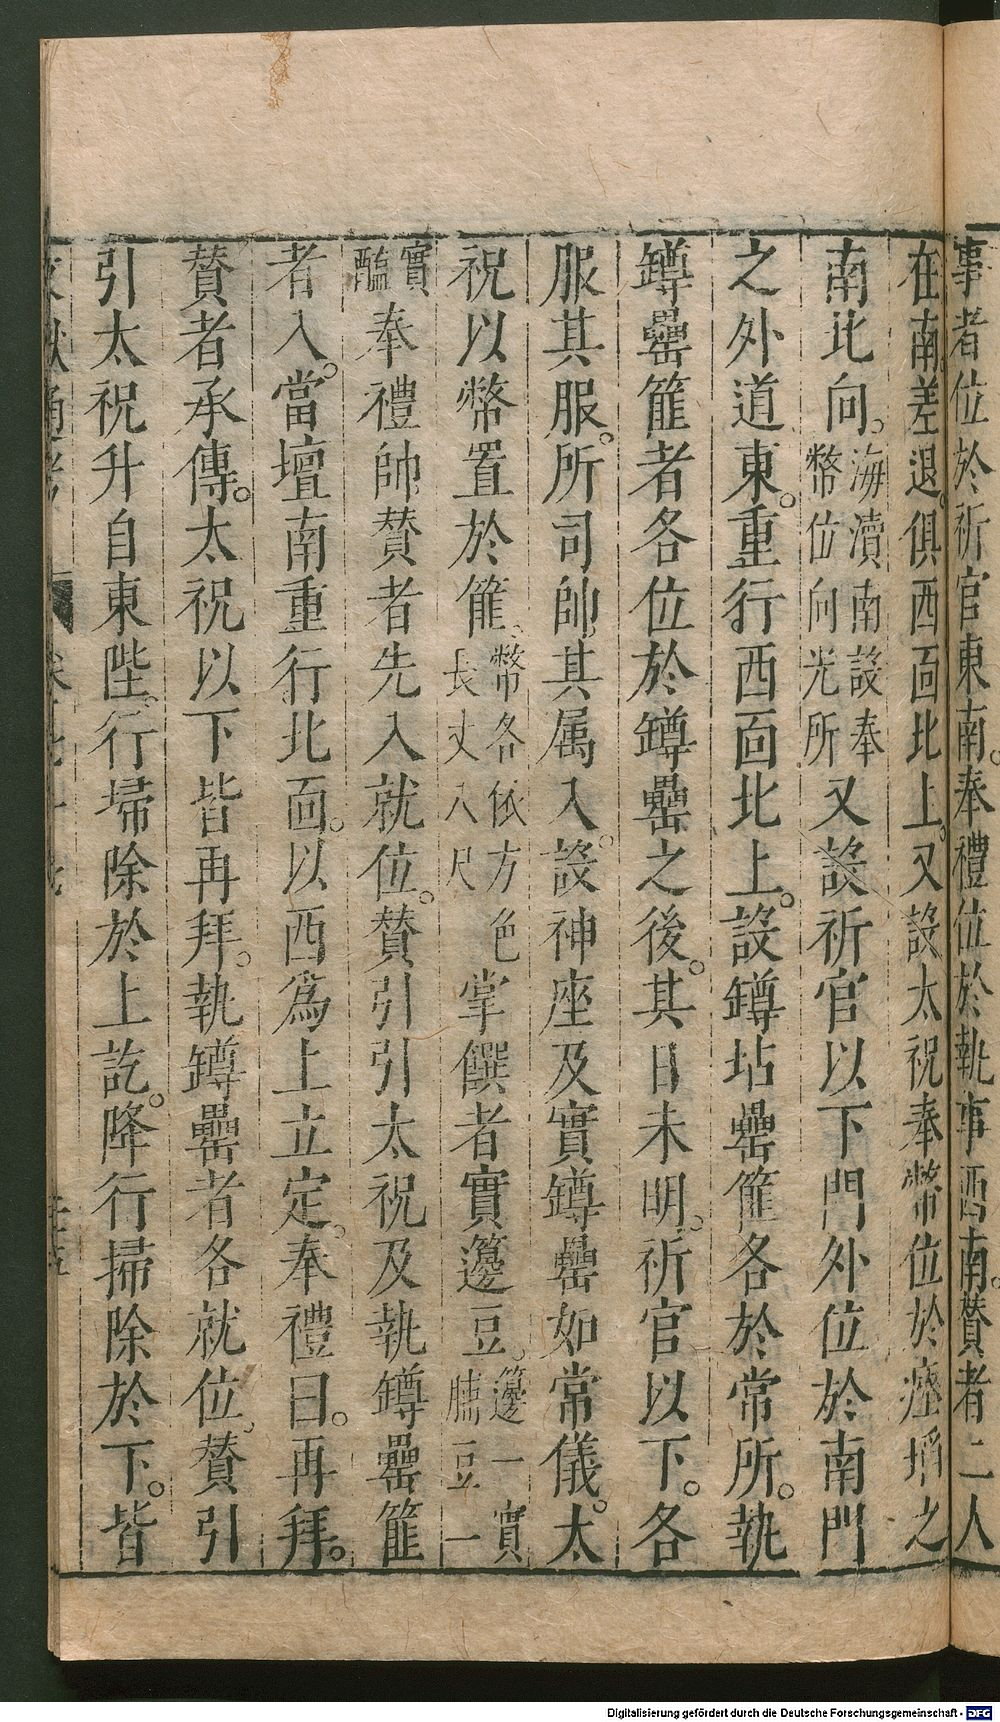 事者位於祈官東南。奉禮位於執事西南。贊者二人
在南差退。俱西面北上。又設太祝奉幣位於瘞埳之
南北向。海瀆南設奉幣位向光所又設祈官以下門外位於南門
之外道東。重行西面北上。設罇坫罍篚各於常所。執
罇罍篚者各位於罇罍之後。其日未明。祈官以下。各
服其服。所司帥其属入。設神座及實罇罍如常儀。太
祝以幣置於篚。幣各依方色長丈八尺掌饌者實籩豆。籩一實脯豆一
實醢奉禮帥贊者先入就位。贊引引太祝及執罇罍篚
者入。當壇南重行北面。以西爲上立定。奉禮曰。再拜。
贊者承傳。太祝以下皆再拜。執罇罍者各就位。贊引
引太祝升自東陛。行埽除於上訖。降行掃除於下。皆
Digitalisierung gefördert durch die Deutsche Forschungsgemeinschaft - DFG